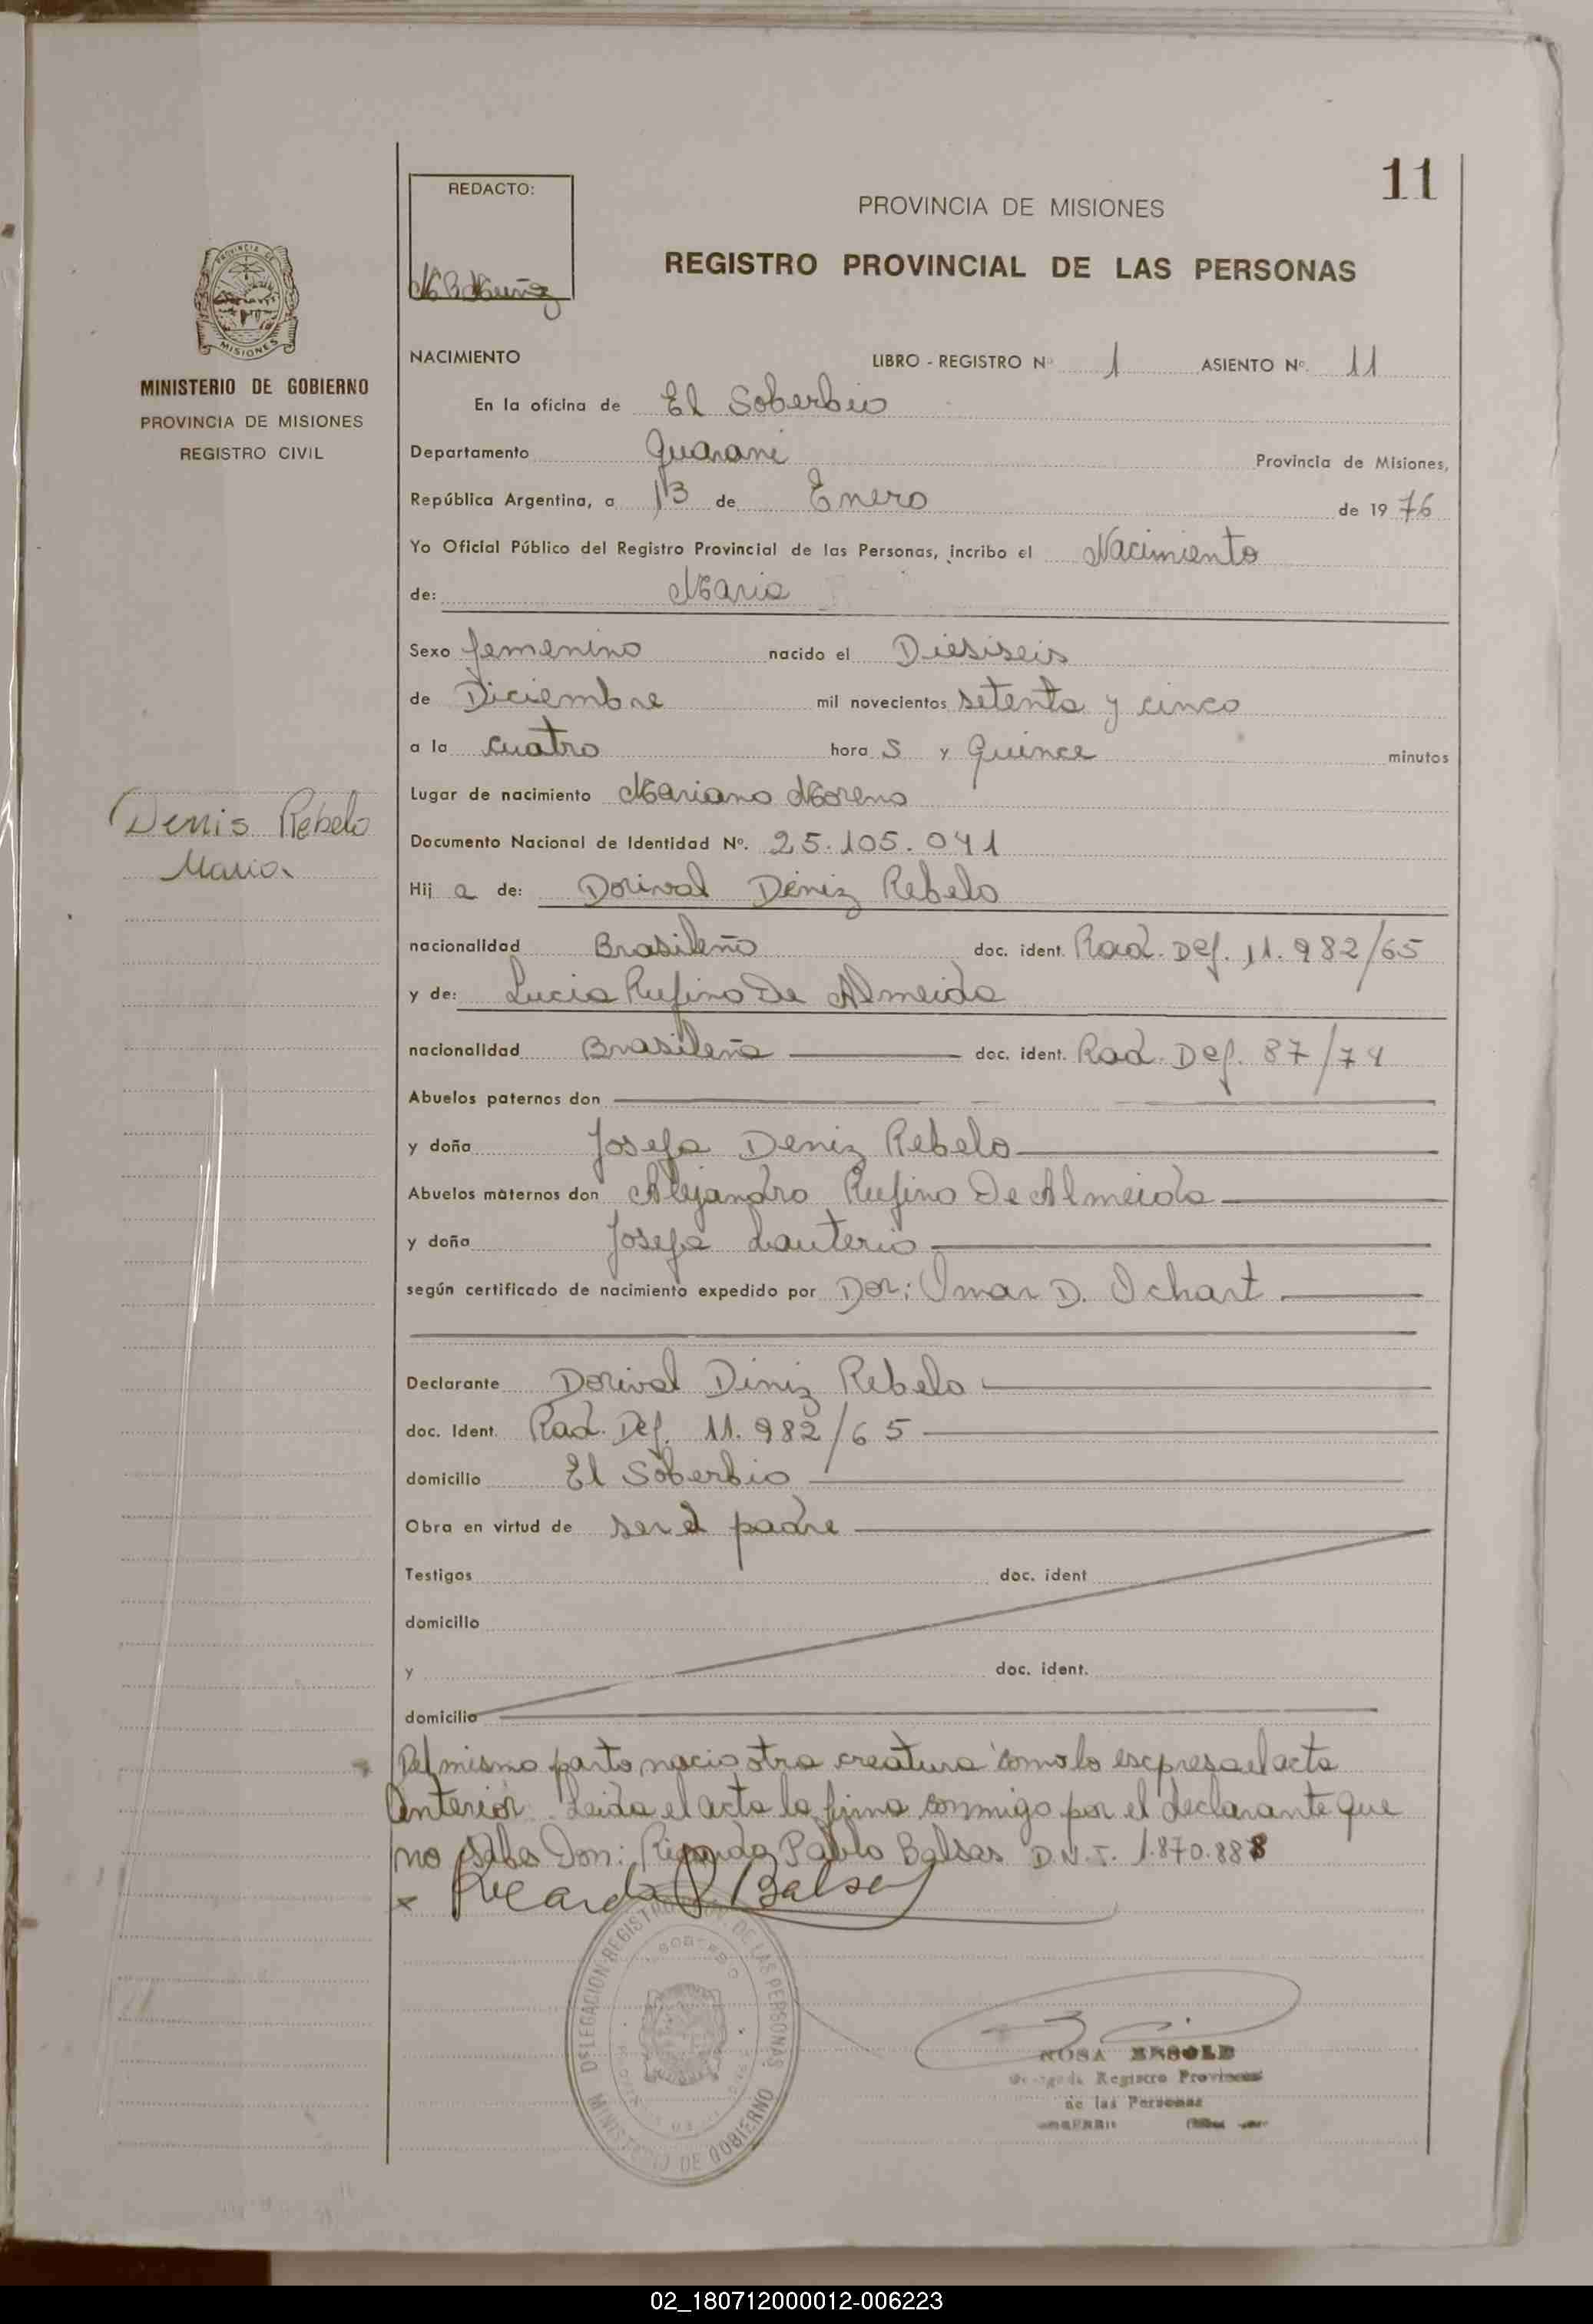 11
REDACTO:
PROVINCIA DE MISIONES
REGISTRO PROVINCIAL DE LAS PERSONAS
PROVINCIA DE
MISIONES
MINISTERIO DE GOBIERNO
PROVINCIA DE MISIONES
REGISTRO CIVIL
NACIMIENTO LIBRO - REGISTRO Nº 1 ASIENTO Nº. 11
En la oficina de El Soberbio
Departamento Guarani Provincia de Misiones,
República Argentina, a 13 de Enero de 1976
Yo Oficial Público del Registro Provincial de las Personas, incribo el Nacimiento
de: Maria
Sexo femenino nacido el Diesiseis
de Diciembre mil novecientos setenta y cinco
a la cuatro hora s y Quince minutos
Lugar de nacimiento Mariano Moreno
Denis Rebelo
Maria
Documento Nacional de Identidad Nº. 25.105.041
Hij a de: Dorival Deniz Rebelo
nacionalidad Brasileño doc. ident. Rad. Def. 11.982/65
y de: Lucia Rufino De Almeida
nacionalidad Brasileña doc. ident. Rad. Def. 87/74
Abuelos paternos don
y doña Josefa Deniz Rebelo
Abuelos maternos don Alejandro Rufino De Almeida
y doña Josefa Lauterio
según certificado de nacimiento expedido por Dor: Omar D. Ichart
Declarante Dorival Diniz Rebelo
doc. Ident. Rad. Def. 11.982/65
domicilio El Soberbio
Obra en virtud de ser el padre
Testigos doc. ident
domicilio
y doc. ident.
domicilio
Del mismo parto nacio otra creatura como lo escpresa el acta
Anterior. Leida el acta la firma conmigo por el declarante que
no sabe Don: Ricardo Pablo Balsas D.N.I. 1.870.888
x Ricardo P Balsa
DELEGACION REGISTRO DE LAS PERSONAS
MINISTERIO DE GOBIERNO
ROSA
Registro Provincial
de las Personas
02_180712000012-006223